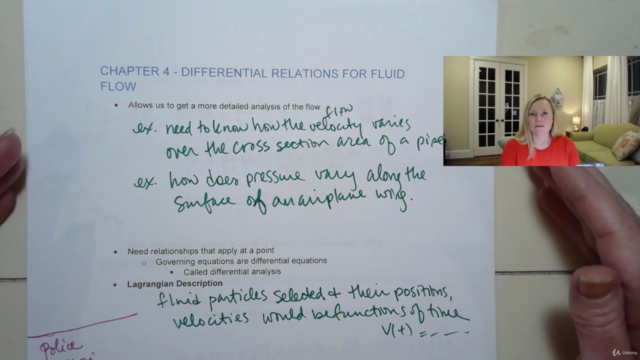 CHAPTER 4 - DIFFERENTIAL RELATIONS FOR FLUID
FLOW
• Allows us to get a more detailed analysis of the flow
flow
ex. need to know how the velocity varies
over the cross section area of a pipe
ex. how does pressure vary along the
surface of an airplane wing.
• Need relationships that apply at a point
○ Governing equations are differential equations
▪ Called differential analysis
• Lagrangian Description
fluid particles selected & their positions,
velocities would be functions of time
V(t) = ----
Police
Udemy